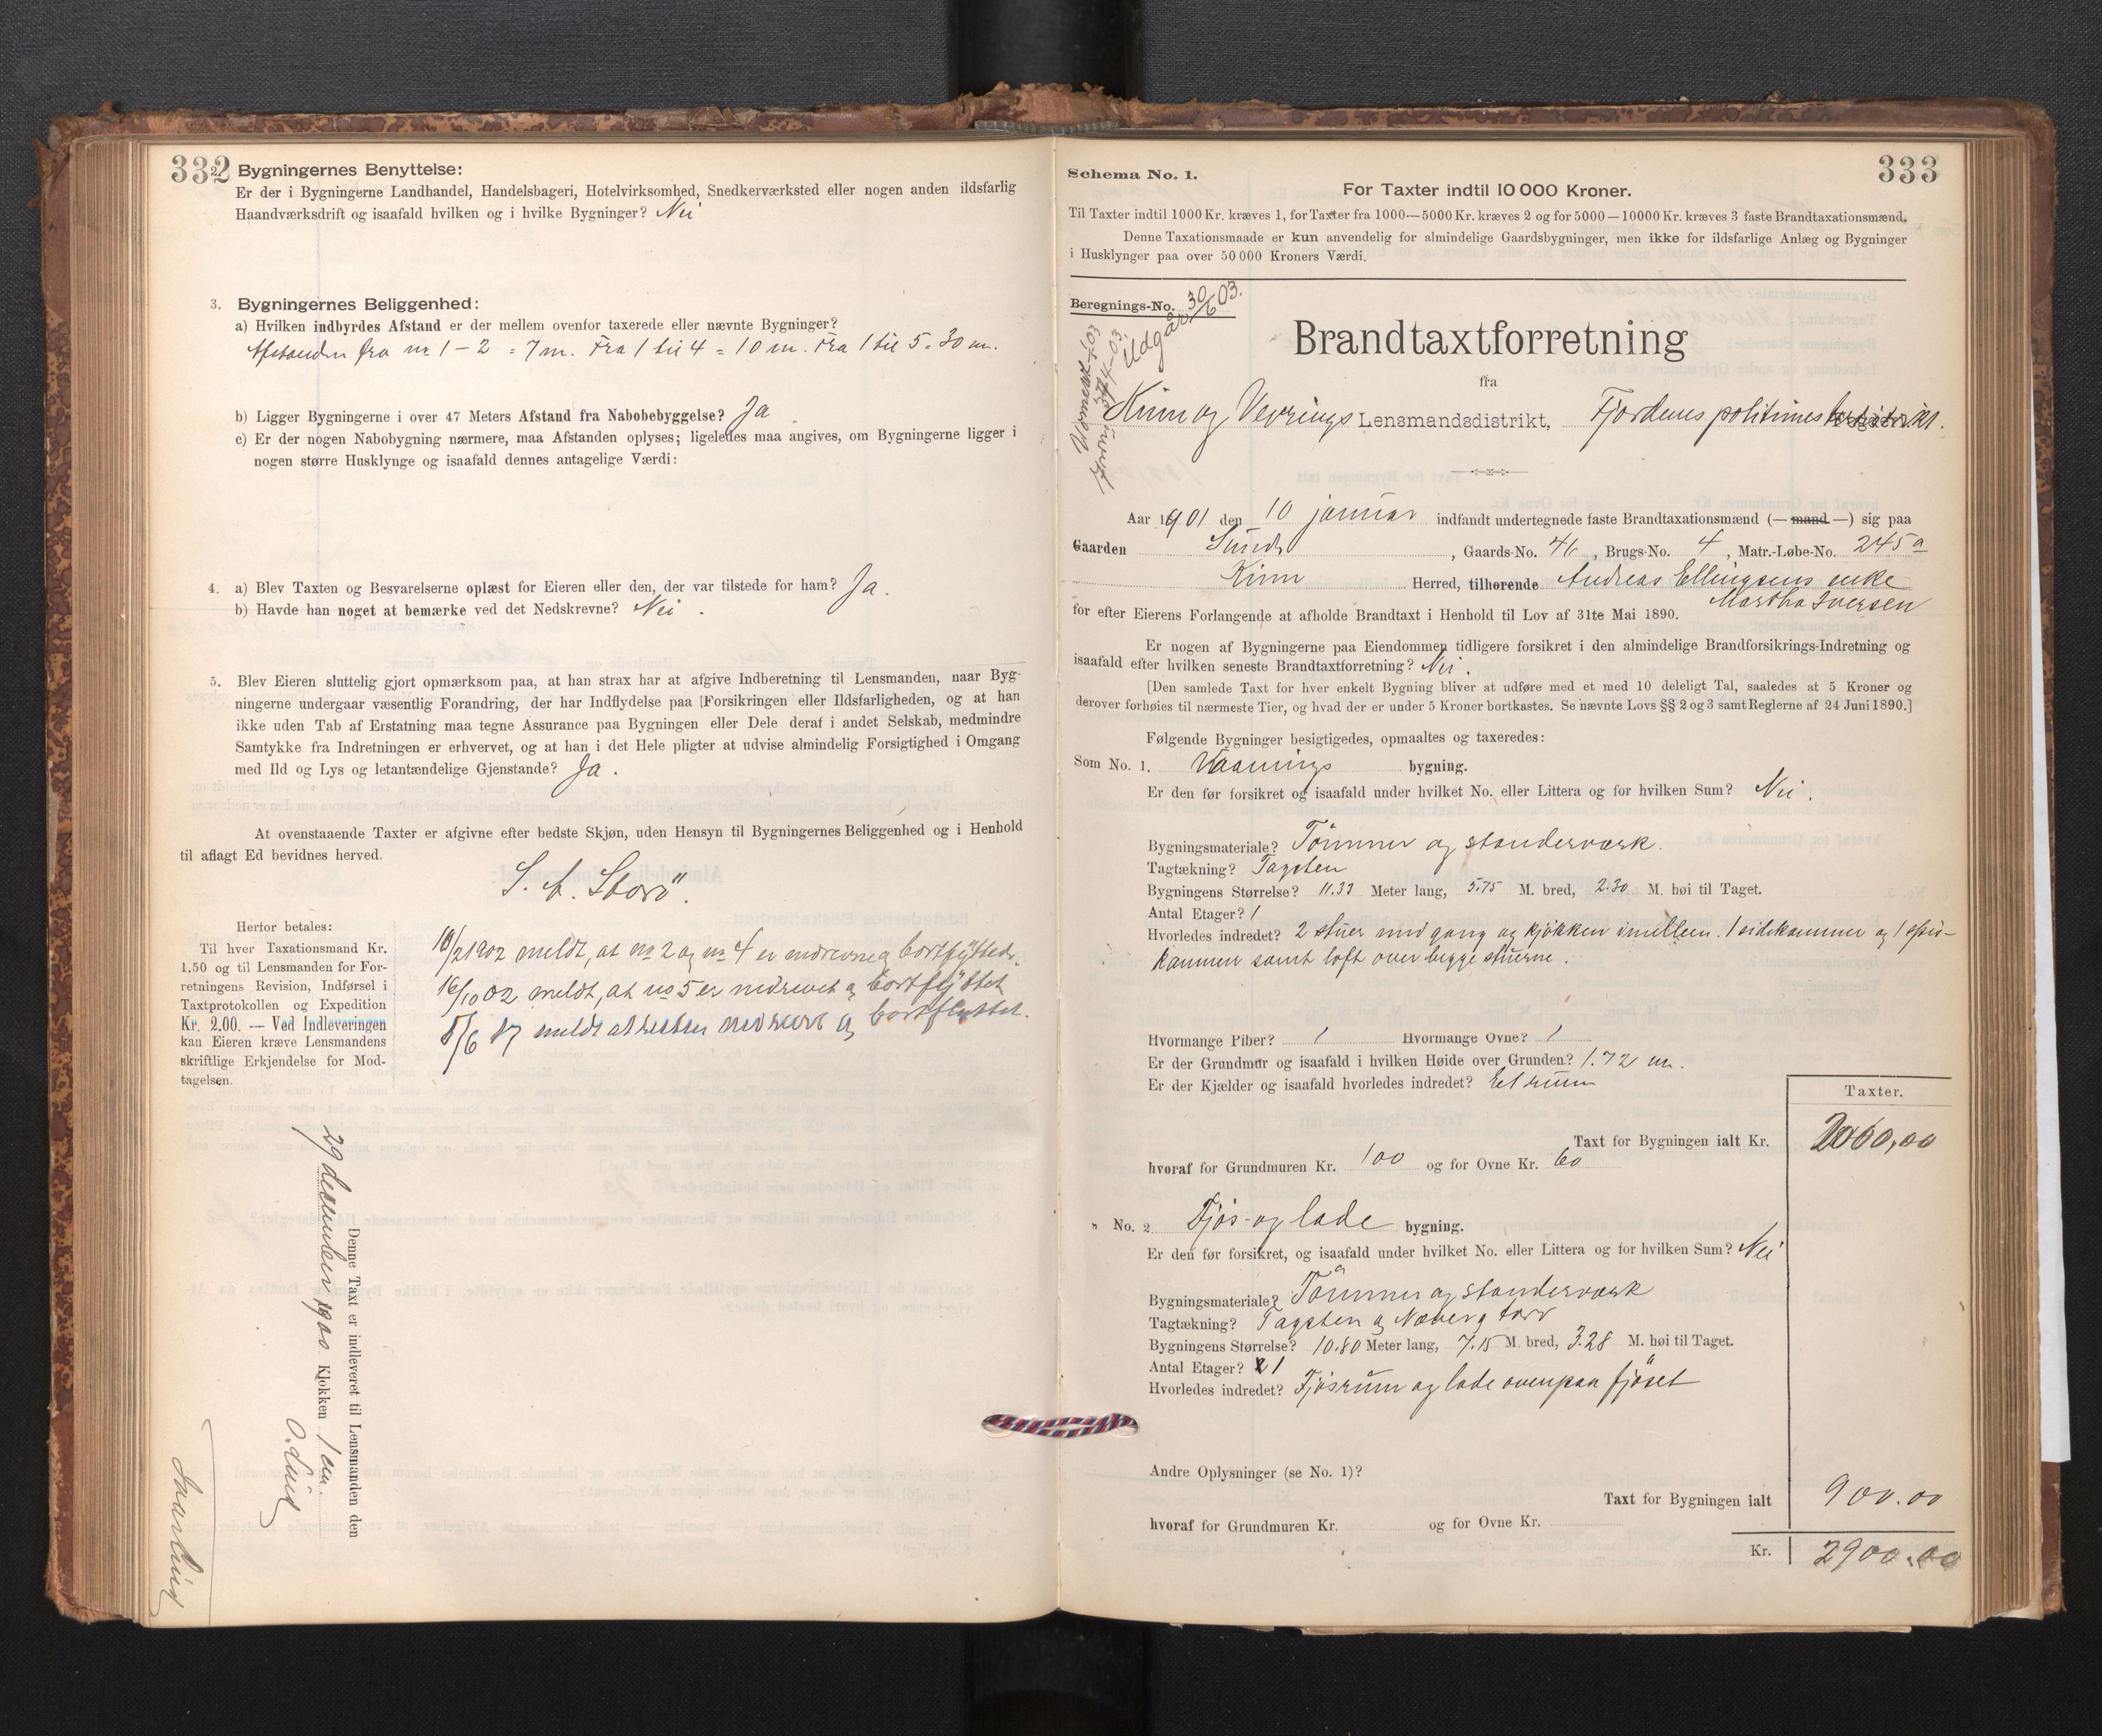 332
2. Bygningernes Benyttelse:
Er der i Bygningerne Landhandel, Handelsbageri, Hotelvirksomhed, Snedkerværksted eller nogen anden ildsfarlig
Haandværksdrift og isaafald hvilken og i hvilke Bygninger? Nei
3. Bygningernes Beliggenhed:
a) Hvilken indbyrdes Afstand er der mellem ovenfor taxerede eller nævnte Bygninger?
Afstanden fra nr 1 - 2 = 7 m. Fra 1 til 4 = 10 m. Fra 1 til 5 = 30 m.
b) Ligger Bygningerne i over 47 Meters Afstand fra Nabobebyggelse? Ja
c) Er der nogen Nabobygning nærmere, maa Afstanden oplyses; ligeledes maa angives, om Bygningerne ligger i
nogen større Husklynge og isaafald dennes antagelige Værdi:
4. a) Blev Taxten og Besvarelserne oplæst for Eieren eller den, der var tilstede for ham? Ja.
b) Havde han noget at bemærke ved det Nedskrevne? Nei.
5. Blev Eieren sluttelig gjort opmærksom paa, at han strax har at afgive Indberetning til Lensmanden, naar Byg-
ningerne undergaar væsentlig Forandring, der har Indflydelse paa Forsikringen eller Ildsfarligheden, og at han
ikke uden Tab af Erstatning maa tegne Assurance paa Bygningen eller Dele deraf i andet Selskab, medmindre
Samtykke fra Indretningen er erhvervet, og at han i det Hele pligter at udvise almindelig Forsigtighed i Omgang
med Ild og Lys og letantændelige Gjenstande? Ja.
At ovenstaaende Taxter er afgivne efter bedste Skjøn, uden Hensyn til Bygningernes Beliggenhed og i Henhold
til aflagt Ed bevidnes herved.
S. A. Storö.
Herfor betales:
Til hver Taxationsmand Kr.
1.50 og til Lensmanden for For-
retningens Revision, Indførsel i
Taxtprotokollen og Expedition
Kr. 2.00. — Ved Indleveringen
kan Eieren kræve Lensmandens
skriftlige Erkjendelse for Mod-
tagelsen.
18/2 1902 meldt, at no 2 og no 4 er nedrevne og bortflyttede.
16/10 02 meldt, at no 5 er nedrevet og bortflyttet
8/6 17 meldt at resten nedrevet og bortflyttet.
Denne Taxt er indleveret til Lensmanden den
29 december 1900 Klokken 1 em.
O. Lund
333
Schema No. 1.
For Taxter indtil 10 000 Kroner.
Til Taxter indtil 1000 Kr. kræves 1, for Taxter fra 1000—5000 Kr. kræves 2 og for 5000—10000 Kr. kræves 3 faste Brandtaxationsmænd.
Denne Taxationsmaade er kun anvendelig for almindelige Gaardsbygninger, men ikke for ildsfarlige Anlæg og Bygninger
i Husklynger paa over 50 000 Kroners Værdi.
Beregnings-No.
Udgår 30/6 03.
Brandtaxtforretning
fra
Kinn og Vevrings Lensmandsdistrikt, Fjordenes politimesterdistrikt.
Aar 1901 den 10 januar indfandt undertegnede faste Brandtaxationsmænd (— mand —) sig paa
Gaarden Sunde, Gaards-No. 41, Brugs-No. 4, Matr.-Løbe-No. 245 a
Kinn Herred, tilhørende Andreas Ellingsens enke
Martha Iversen
for efter Eierens Forlangende at afholde Brandtaxt i Henhold til Lov af 31te Mai 1890.
Er nogen af Bygningerne paa Eiendommen tidligere forsikret i den almindelige Brandforsikrings-Indretning og
isaafald efter hvilken seneste Brandtaxtforretning? Nei.
[Den samlede Taxt for hver enkelt Bygning bliver at udføre med et med 10 deleligt Tal, saaledes at 5 Kroner og
derover forhøies til nærmeste Tier, og hvad der er under 5 Kroner bortkastes. Se nævnte Lovs §§ 2 og 3 samt Reglerne af 24 Juni 1890.]
Følgende Bygninger besigtigedes, opmaaltes og taxeredes:
Som No. 1. Vaanings bygning.
Er den før forsikret og isaafald under hvilket No. eller Littera og for hvilken Sum? Nei.
Bygningsmateriale? Tömmer og standerværk.
Tagtækning? Tagsten
Bygningens Størrelse? 11.33 Meter lang, 5.75 M. bred, 2.30 M. høi til Taget.
Antal Etager? 1
Hvorledes indredet? 2 stuer med gang og kjökken imellem. 1 sidekammer og 1 spis-
kammer samt loft over begge stuerne.
Hvormange Piber? 1 Hvormange Ovne? 1
Er der Grundmur og isaafald i hvilken Høide over Grunden? 1.72 m.
Er der Kjælder og isaafald hvorledes indredet? Et rum
Taxter.
Taxt for Bygningen ialt Kr. 2060,00
hvoraf for Grundmuren Kr. 100 og for Ovne Kr. 60
" No. 2 Fjøs- og lade bygning.
Er den før forsikret, og isaafald under hvilket No. eller Littera og for hvilken Sum? Nei
Bygningsmateriale? Tömmer og standerværk
Tagtækning? Tagsten og Næver og torv
Bygningens Størrelse? 10.80 Meter lang, 7.15 M. bred, 3.28 M. høi til Taget.
Antal Etager? 1
Hvorledes indredet? Fjösrum og lade ovenpaa fjöset
Andre Oplysninger (se No. 1)?
Taxt for Bygningen ialt 900.00
hvoraf for Grundmuren Kr. og for Ovne Kr.
Kr. 2900.00